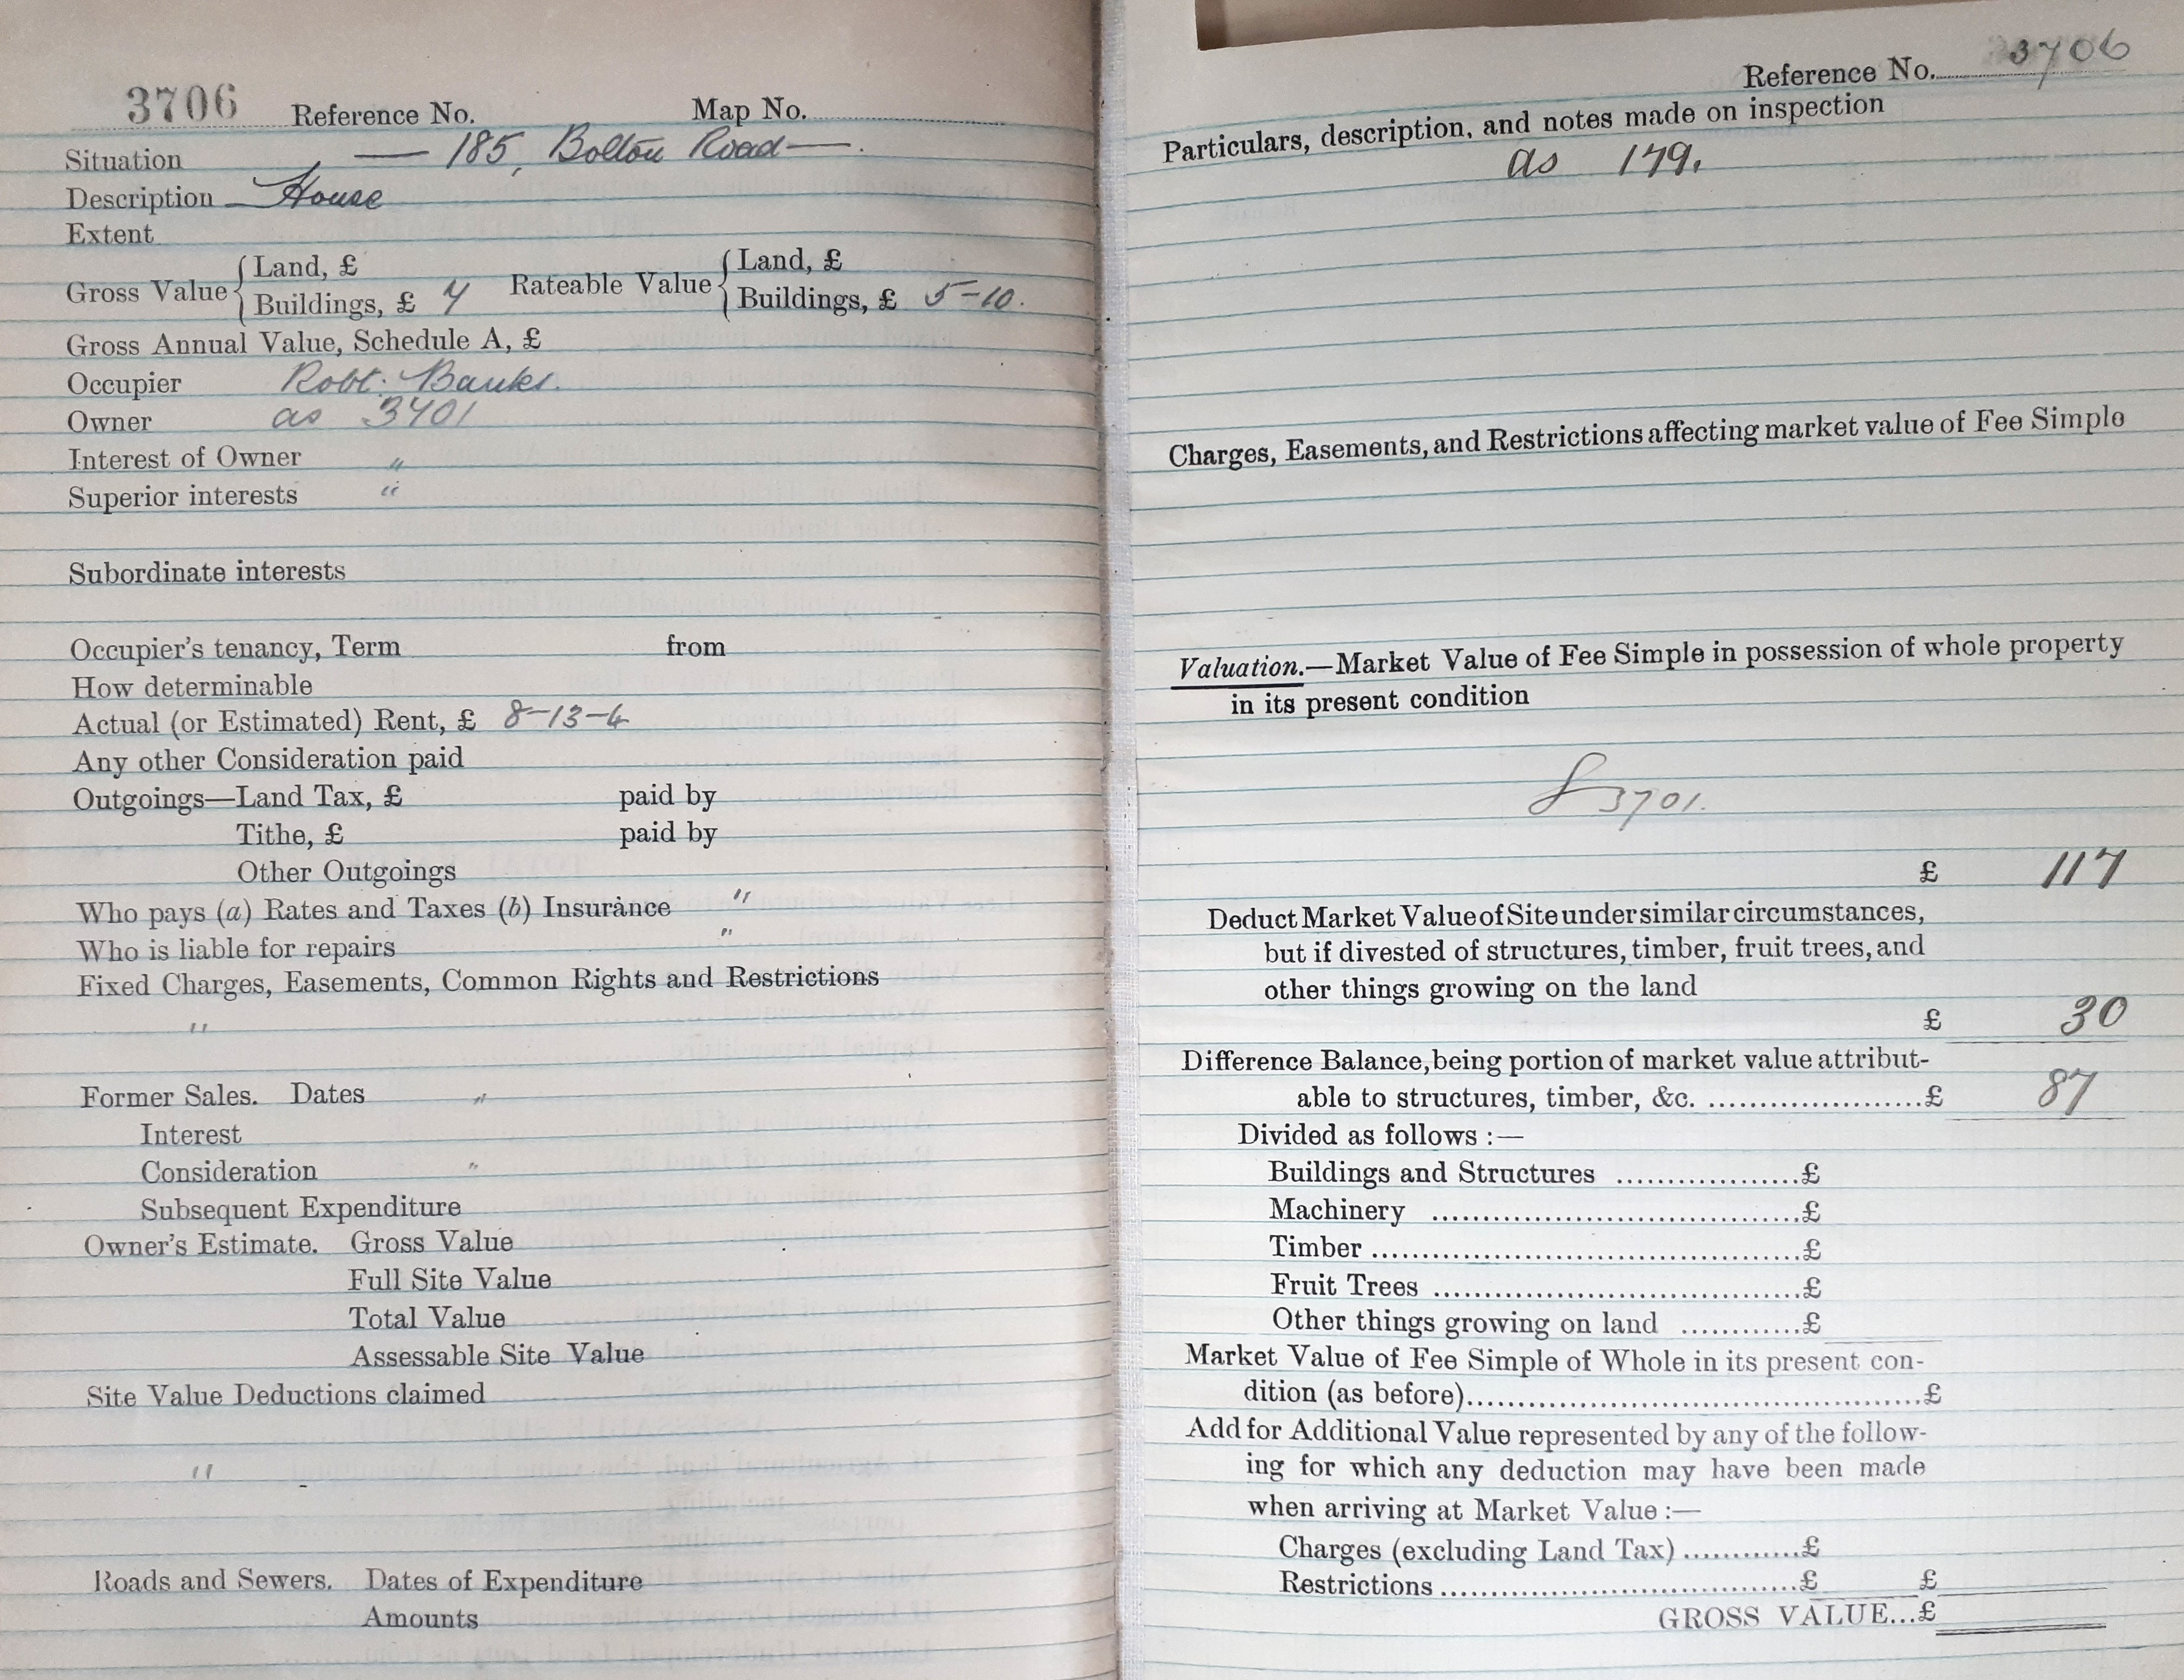 3706 Reference No. Map No.
Situation — 185, Bolton Road —.
Description House
Extent
Gross Value { Land, £ Rateable Value { Land, £
Buildings, £ 7 Buildings, £ 5-10.
Gross Annual Value, Schedule A, £
Occupier Robt. Banks.
Owner as 3701
Interest of Owner "
Superior interests "
Subordinate interests
Occupier's tenancy, Term from
How determinable
Actual (or Estimated) Rent, £ 8-13-4
Any other Consideration paid
Outgoings—Land Tax, £ paid by
Tithe, £ paid by
Other Outgoings
Who pays (a) Rates and Taxes (b) Insurance "
Who is liable for repairs "
Fixed Charges, Easements, Common Rights and Restrictions
"
Former Sales. Dates "
Interest
Consideration "
Subsequent Expenditure
Owner's Estimate. Gross Value
Full Site Value
Total Value
Assessable Site Value
Site Value Deductions claimed
"
Roads and Sewers. Dates of Expenditure
Amounts
Reference No. 3706
Particulars, description, and notes made on inspection
as 179.
Charges, Easements, and Restrictions affecting market value of Fee Simple
Valuation.—Market Value of Fee Simple in possession of whole property
in its present condition
3701.
£ 117
Deduct Market Value of Site under similar circumstances,
but if divested of structures, timber, fruit trees, and
other things growing on the land
£ 30
Difference Balance, being portion of market value attribut-
able to structures, timber, &c. ......................£ 87
Divided as follows :—
Buildings and Structures ..................£
Machinery .....................................£
Timber ...........................................£
Fruit Trees .....................................£
Other things growing on land ............£
Market Value of Fee Simple of Whole in its present con-
dition (as before)..............................................£
Add for Additional Value represented by any of the follow-
ing for which any deduction may have been made
when arriving at Market Value :—
Charges (excluding Land Tax) ............£
Restrictions ....................................£ £
GROSS VALUE...£